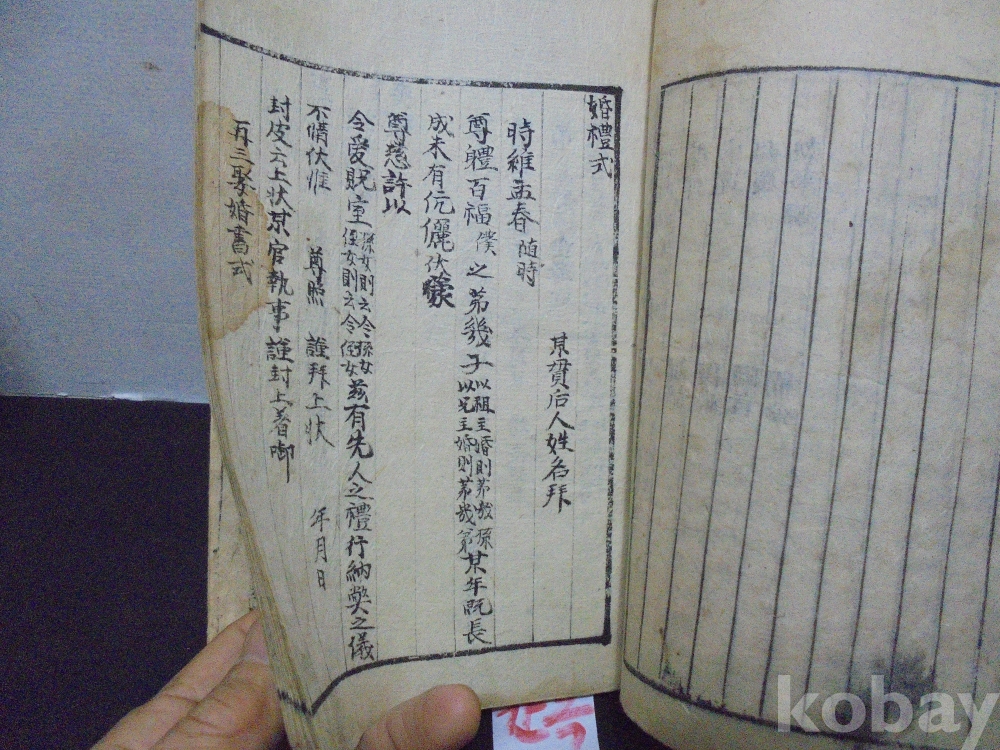 婚禮式
某貫后人姓名拜
時維孟春 随時
尊體百福 僕之苐幾子 以祖主婚則苐幾孫 以兄主婚則苐幾弟 某年既長
成未有伉儷伏蒙
尊慈許以
令愛貺室 孫女則云令孫女 侄女則云令侄女 玆有先人之禮行納幣之儀
不備伏惟 尊照 謹拜上状 年月日
封皮云上状某官執事謹封上着啣
再三娶婚書式
kobay